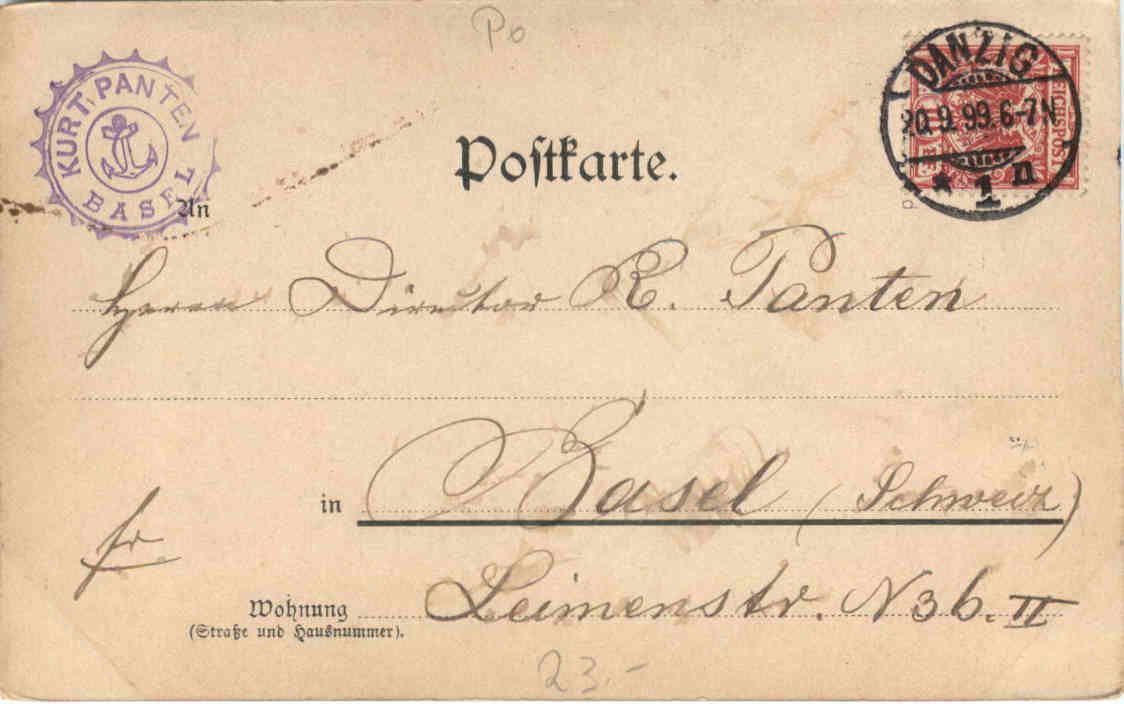 Po
KURT PANTEN
BASEL
DANZIG
20.9.99.6-7N
* 1 n
REICHSPOST
Postkarte.
An
Herrn Director K. Panten
in Basel (Schweiz)
fr
Wohnung Leimenstr. N 36. II
(Straße und Hausnummer).
23.-